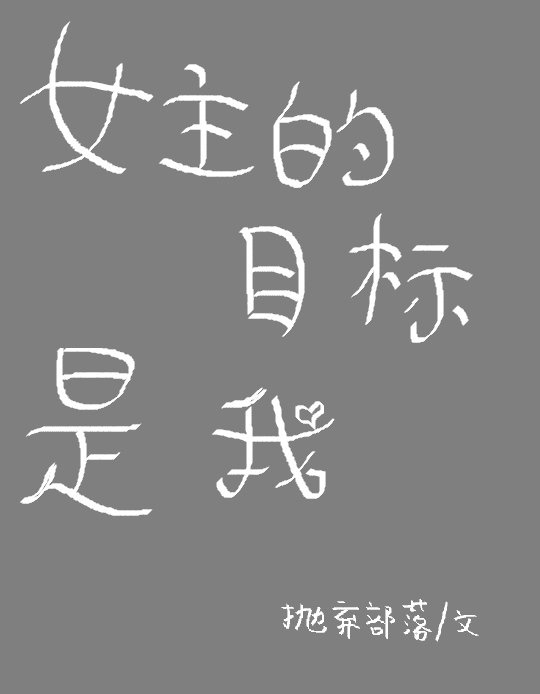 女主的
目标
是我
抛弃部落/文